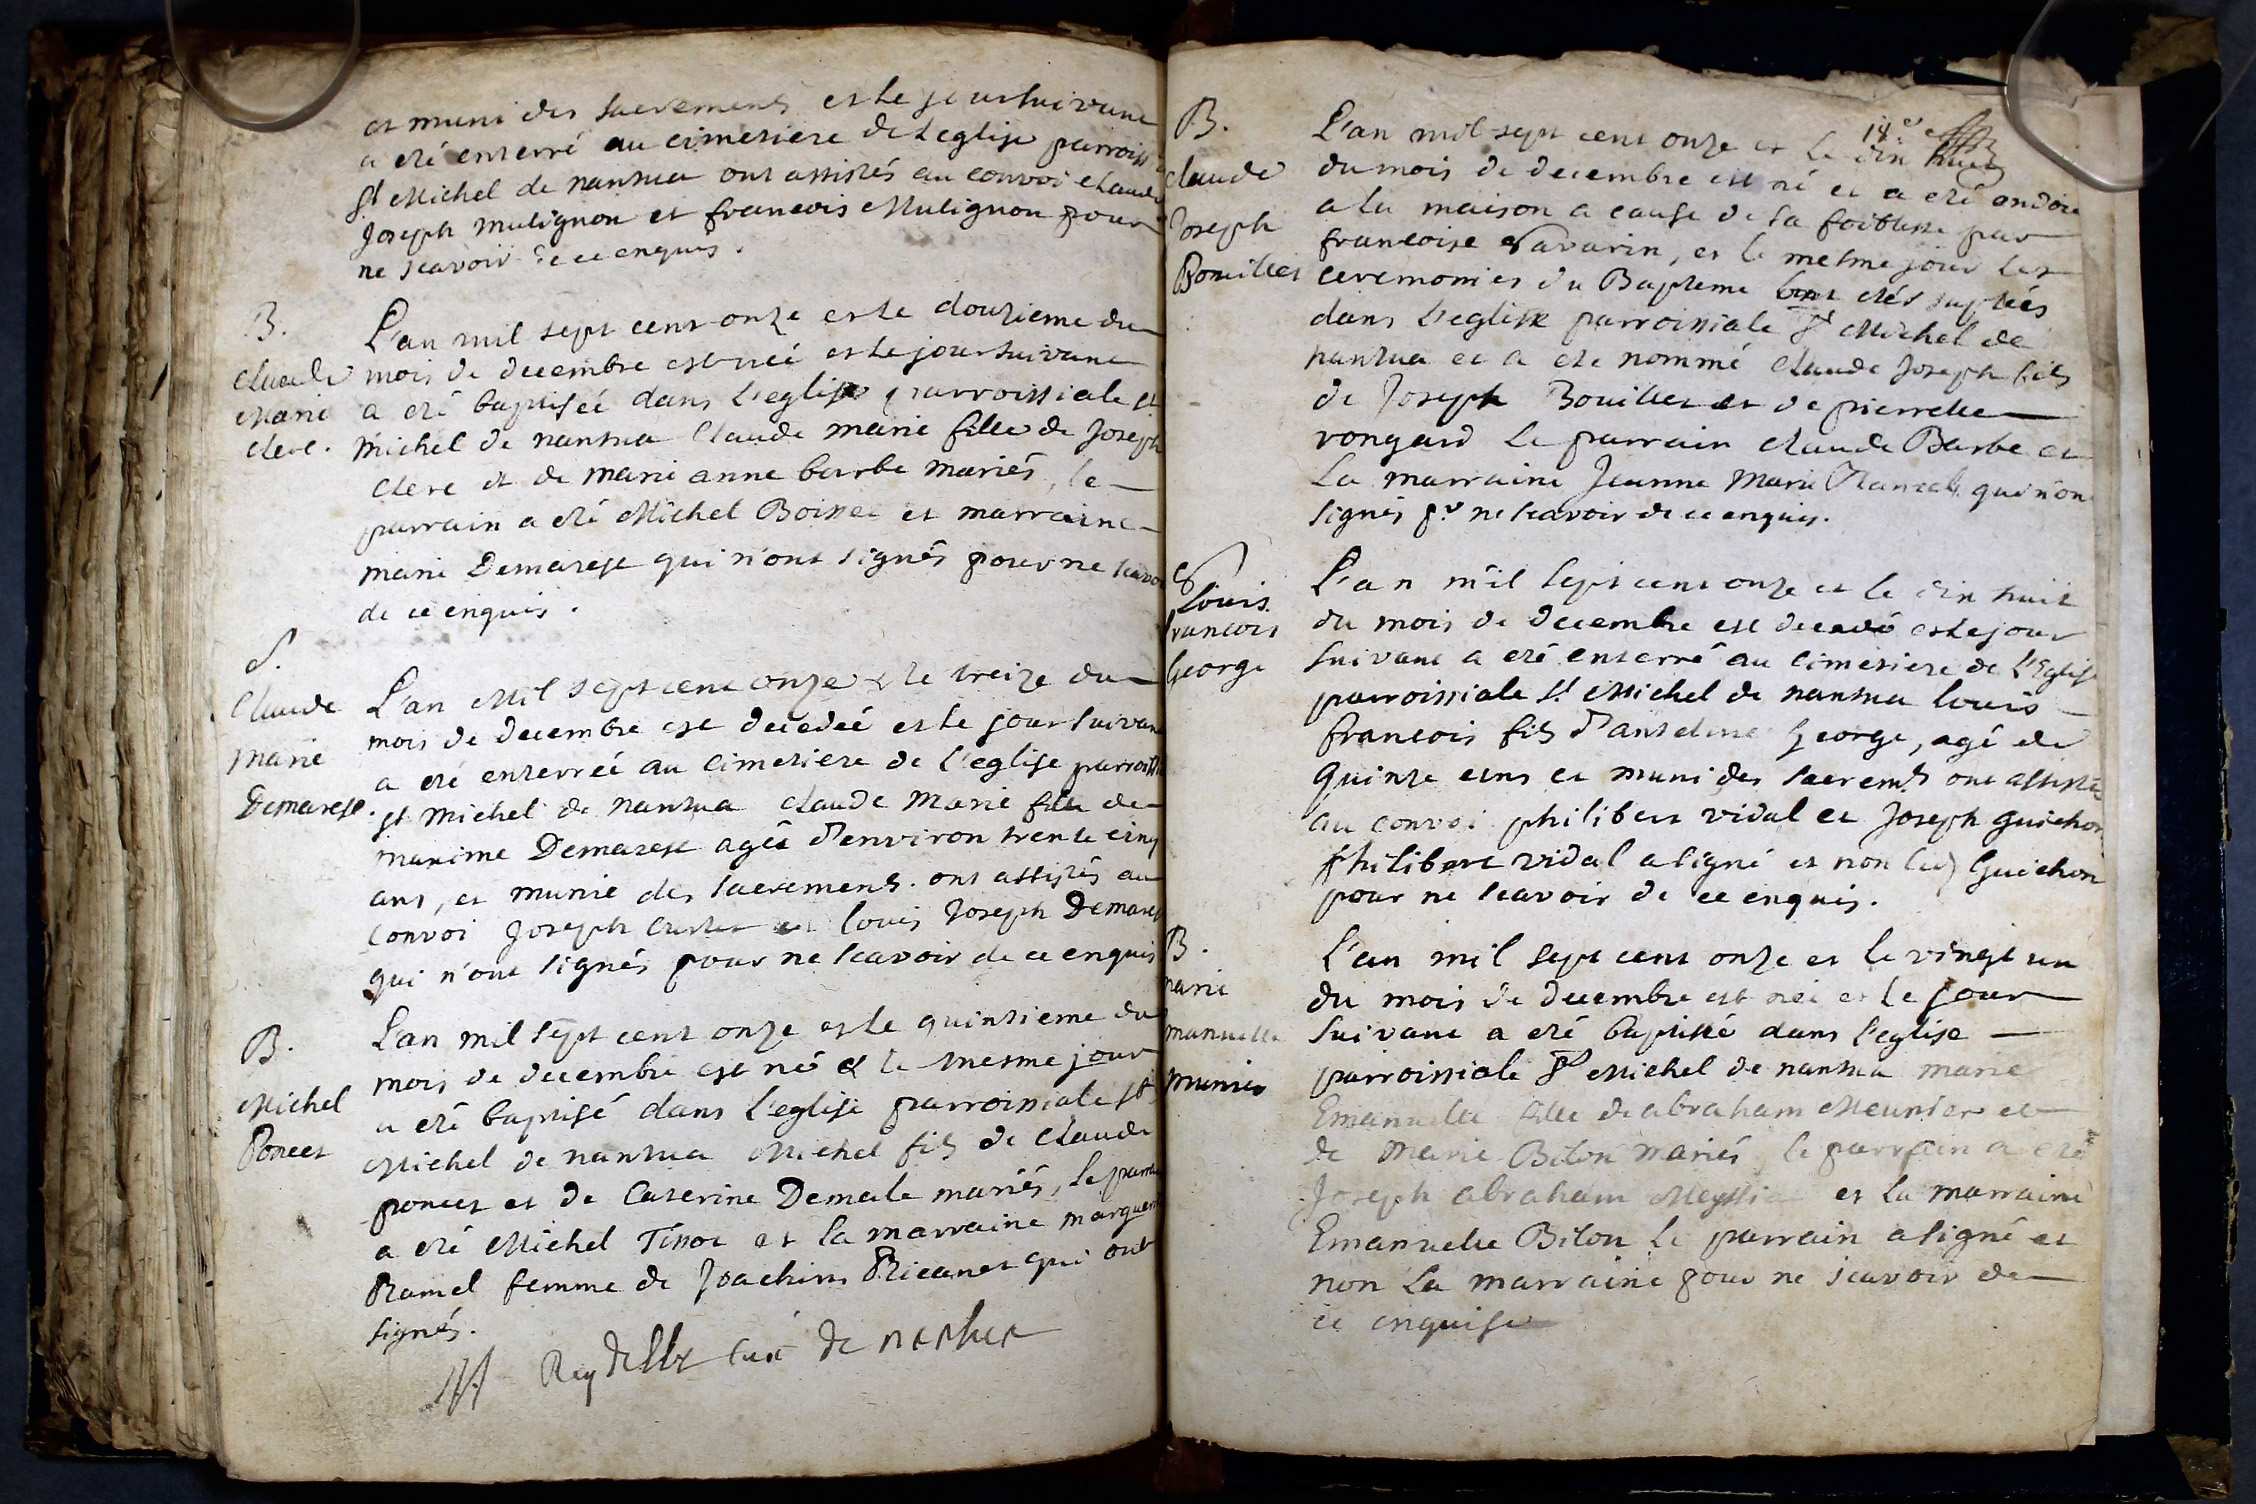 et muni des sacrements et le jour suivant
a eté enterré au cimetiere de l'eglise parroiss
St Michel de nantua ont assistés au convoi claude
Joseph mulignon et francois Mulignon pour
ne scavoir de ce enquis.
B.
Claude
Marie
clerc.
L'an mil sept cent onze et le douzieme du
mois de decembre est néé et le jour suivant
a eté baptiséé dans l'eglise parroissiale st
michel de nantua Claude marie fille de Joseph
clerc et de marie anne barbe mariés, le
parrain a eté Michel Boisset et marraine
marie Demarest qui n'ont signés pour ne scavo
de ce enquis.
S.
Claude
marie
Demarest.
L'an Mil sept cent onze & le treize du
mois de decembre est decedéé et le jour suivant
a eté enterréé au cimetiere de l'eglise parroissi
st michel de nantua claude marie fille de
maxime Demarest agéé d'environ trente cinq
ans, et munie des sacrements. ont assistés au
convoi Joseph et louis Joseph Demarest
qui n'ont signés pour ne scavoir de ce enquis
B.
Michel
Poncet
L'an mil sept cent onze et le quinsieme du
mois de decembre est né & le mesme jour
a eté baptisé dans l'eglise parroissiale st
Michel de nantua Michel fils de claude
poncet et de Caterine Demele mariés, le parra
a eté Michel Tissot et la marraine marguerit
Ramel femme de Joachim Ricanet qui ont
signés.
Reydellet curé de nantua
18e
B.
Claude
Joseph
Bouillet
L'an mil sept cent onze et le dix huit
du mois de decembre est né et a eté andoié
a la maison a cause de sa foiblesse par
francoise Savarin, et le mesme jour les
ceremonies du Bapteme sont etés supléés
dans l'eglise parroissiale St Michel de
nantua et a ete nommé Claude Joseph fils
de Joseph Bouillet et de pierrette
vongard le parrain claude Barbe et
La marraine Jeanne Marie qui n'on
signés pr ne scavoir de ce enquis.
S
Louis
francois
George
L'an mil sept cent onze et le dix huit
du mois de decembre est decedé et le jour
suivant a eté enterré au cimetiere de l'Eglise
parroissiale St Michel de nantua louis
francois fils d'antelme George, agé de
Quinze ans et muni des sacremts ont assistés
au convoi philibert vidal et Joseph guichon
philibert vidal a signé et non led Guichon
pour ne scavoir de ce enquis.
B.
marie
manuelle
munier
L'an mil sept cent onze et le vingt un
du mois de decembre est néé et le jour
suivant a eté baptisé dans l'eglise
parroissiale St Michel de nantua marie
Emanuelle fille de abraham Meunier et
de Marie Biton mariés, le parrain a eté
Joseph abraham et la marraine
Emanuelle Biton le parrain a signé et
non La marraine pour ne scavoir de
ce enquise